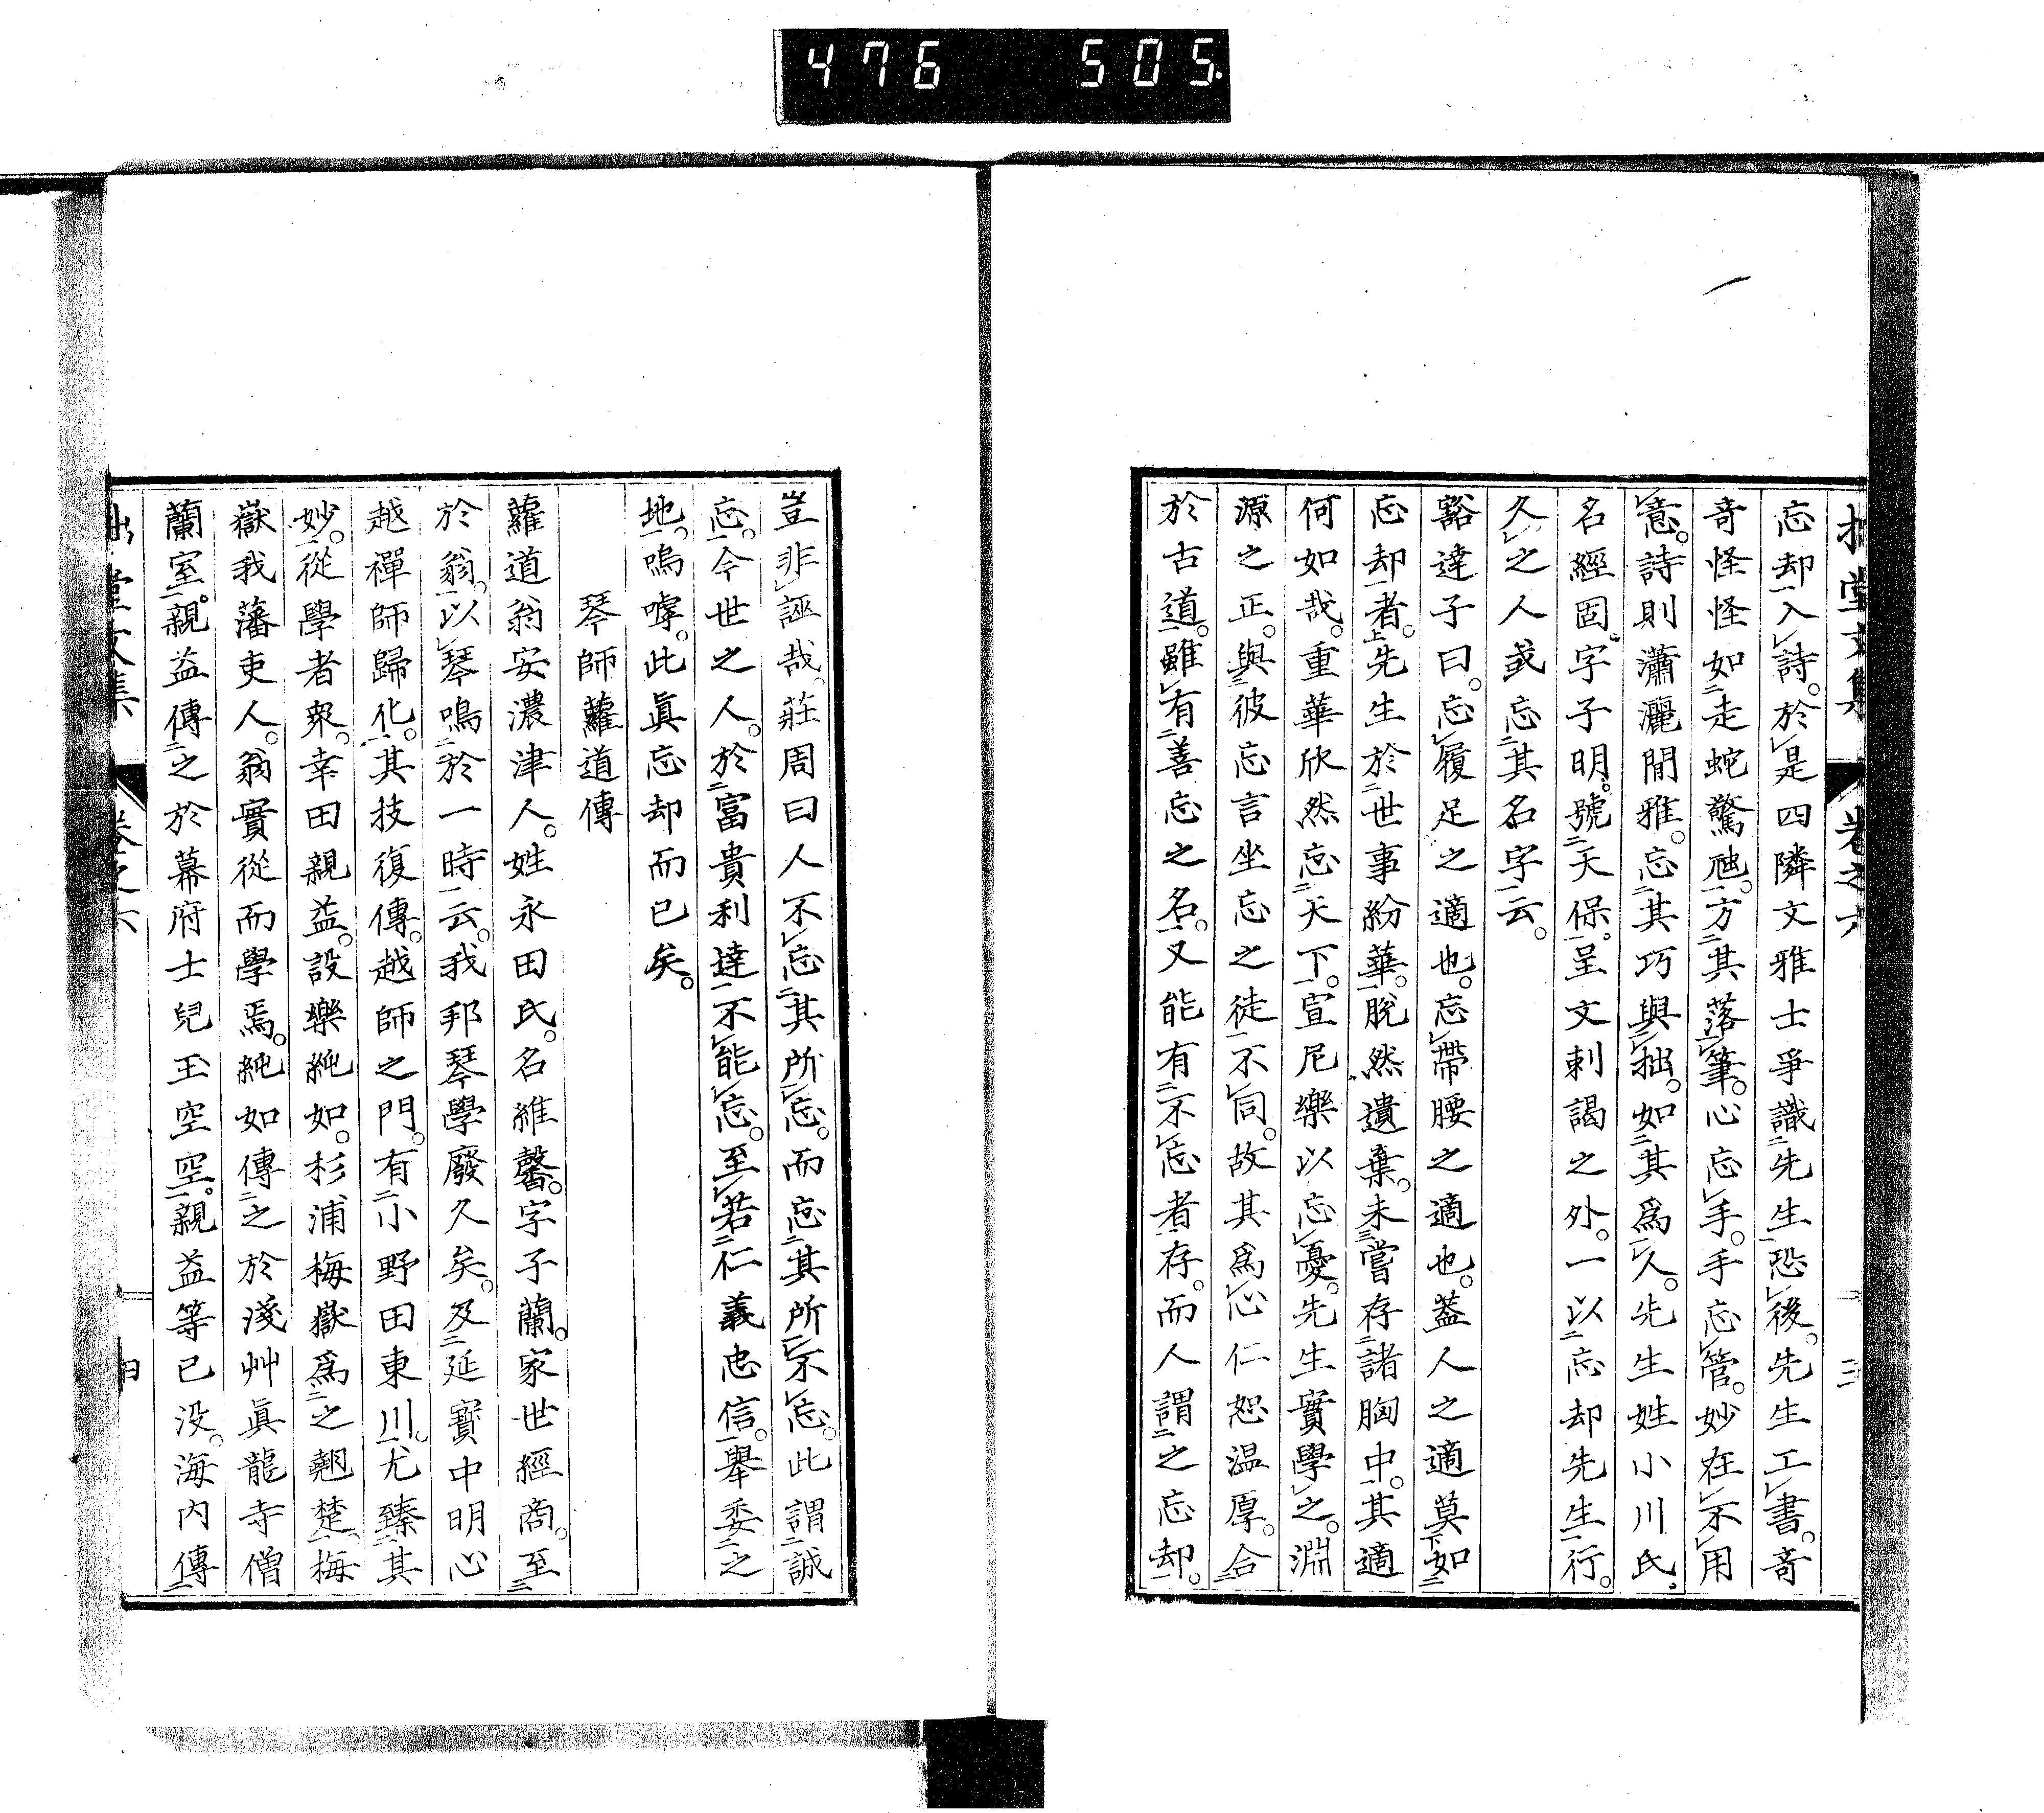 476 505.
拙堂文集 卷之六 三
忘却入詩。於是四隣文雅士爭識先生恐後。先生工書。奇
奇怪怪如走蛇驚虺。方其落筆。心忘手。手忘管。妙在不用
意。詩則瀟灑閒雅。忘其巧與拙。如其爲人。先生姓小川氏。
名經固。字子明。號天保。呈文刺謁之外。一以忘却先生行。
久之人或忘其名字云。
豁達子曰。忘履足之適也。忘帶腰之適也。蓋人之適莫如
忘却者。先生於世事紛華。脫然遺棄。未嘗存諸胸中。其適
何如哉。重華欣然忘天下。宣尼樂以忘憂。先生實學之。淵
源之正。與彼忘言坐忘之徒不同。故其爲心仁恕温厚。合
於古道。雖有善忘之名。又能有不忘者存。而人謂之忘却。
豈非誣哉。莊周曰人不忘其所忘。而忘其所不忘。此謂誠
忘。今世之人。於富貴利達不能忘。至若仁義忠信。舉委之
地。嗚嘑。此眞忘却而已矣。
琴師蘿道傳
蘿道翁安濃津人。姓永田氏。名維馨。字子蘭。家世經商。至
於翁。以琴鳴於一時云。我邦琴學廢久矣。及延寶中明心
越禪師歸化。其技復傳。越師之門。有小野田東川。尤臻其
妙。從學者衆。幸田親益。設樂純如。杉浦梅嶽爲之翹楚。梅
嶽我藩吏人。翁實從而學焉。純如傳之於淺艸眞龍寺僧
蘭室。親益傳之於幕府士兒玉空空。親益等已没。海内傳
拙堂文集 卷之六 四